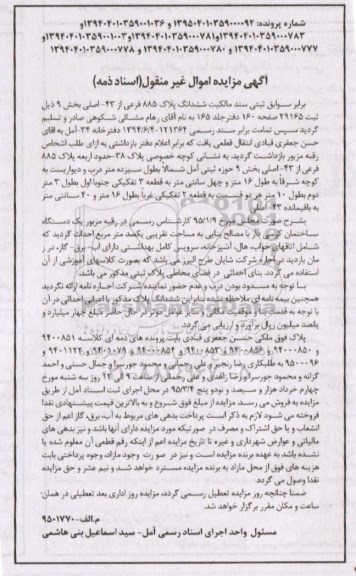 شماره پرونده: ۱۳۹۵۰۴۰۱۰۳۵۹۰۰۰۰۹۲ و ۱۳۹۴۰۴۰۱۰۳۵۹۰۰۱۰۳۶و
۱۳۹۴۰۴۰۱۰۳۵۹۰۰۰۷۸۳و۱۳۹۴۰۴۰۱۰۳۵۹۰۰۰۷۸۱و۱۳۹۴۰۴۰۱۰۳۵۹۰۰۱۰۰۳و
۱۳۹۴۰۴۰۱۰۳۵۹۰۰۰۷۷۷ و ۱۳۹۴۰۴۰۱۰۳۵۹۰۰۰۷۸۰ و ۱۳۹۴۰۴۰۱۰۳۵۹۰۰۰۷۷۸
آگهی مزایده اموال غیر منقول(اسناد ذمه)
برابر سوابق ثبتی سند مالکیت ششدانگ پلاک ۸۸۵ فرعی از ۴۳- اصلی بخش ۹ ذیل
ثبت ۲۹۱۶۵ صفحه ۱۶۰ دفترجلد ۱۶۵ به نام آقای رهام مشائی شکوهی صادر و تسلیم
گردید سپس تمامت برابر سند رسمی ۱۲۱۳۶۴-۱۳۹۴/۶/۴ دفترخانه ۳۴-آمل به آقای
حسن جعفری قبادی انتقال قطعی یافت که برابر اعلام دفتر بازداشتی به ازای طلب اشخاص
رقبه مزبور بازداشت گردید. به نشانی کوچه خصوصی پلاک ۳۸-حدود اربعه پلاک ۸۸۵
فرعی از ۴۳- اصلی بخش ۹ حوزه ثبتی آمل شمالا بطول سیزده متر درب و دیواریست به
کوچه شرقاً به طول ۱۶ متر و چهل سانتی متر به قطعه ۳ تفکیکی جنوبا اول بطول ۳ متر
دوم بطول ۱۰ متر در دو قسمت به قطعه ۲ تفکیکی غربا بطول ۱۶ متر و ۴۰ سانتی متر
به باقیمانده ۴۳- اصلی
بشرح صورتمجلس مورخ ۹۵/۱/۹ کارشناس رسمی در رقبه مزبور یک دستگاه
ساختمان کوچک با مصالح بنایی به مساحت تقریبی یکصد متر مربع احداث گردید که
شامل اتاقهای خواب، هال، آشپزخانه، سرویس کامل بهداشتی دارای آب، برق، گاز، در ز
مان بازدید در اجاره شرکت شایان طرح البرز می باشد که بصورت کلاسهای آموزشی از آن
استفاده می گردد. بنای احداثی در فضای محاطی پلاک ثبتی مذکور می باشد.
با توجه به مسدود بودن درب و عدم حضور نماینده شرکت اجاره نامه ارائه نگردید
همچنین بیمه نامه ای ملاحظه نشد. بنابراین ششدانگ پلاک مذکور با اعیان احداثی در آن
با توجه به قدمت بنا و موقعیت مکانی و سایر عوامل موثر در حال حاضر مبلغ چهار میلیارد و
پانصد میلیون ریال برآورد و ارزیابی می گردد.
پلاک فوق ملکی حسن جعفری قبادی بابت پرونده های ذمه ای کلاسه ۹۴۰۰۸۵۱
و ۹۴۰۰۸۵۰ و ۹۴۰۰۸۵۶ و ۹۴۰۰۸۵۳ و ۹۴۰۰۸۵۴ و ۹۴۰۱۰۷۹ و ۹۴۰۱۱۲۴ و
۹۵۰۰۰۹۶ به طلبکاری رضا رنجبر و علی رحمانی و محمود جورسرا و جمال حسنی و احمد
گرائه و محمود جورسرا و رضا زاهدی و علی رحمانی از ساعت ۹ الی ۱۲ روز سه شنبه مورخ
چهارم خرداد هزار و سیصد و نودو پنج ۹۵/۳/۴ در محل اجرای ثبت اسناد آمل از طریق
مزایده به فروش می رسد. مزایده از مبلغ فوق شروع و به بالاترین قیمت پیشنهادی نقدا
فروخته می شود لازم به ذکر است پرداخت بدهی های مربوط به آب، برق، گاز اعم از حق
انشعاب و یا حق اشتراک و مصرف در صورتیکه مورد مزایده دارای آنها باشد و نیز بدهی های
مالیاتی و عوارض شهرداری و غیره تا تاریخ مزایده اعم از اینکه رقم قطعی آن معلوم شده یا
نشده باشد به عهده برنده مزایده است و نیز در صورت وجود مازاد، وجوه پرداختی بابت
هزینه های فوق از محل مازاد به برنده مزایده مسترد خواهد شد و نیم عشر و حق مزایده
نقدا وصول می گردد.
ضمنا چنانچه روز مزایده تعطیل رسمی گردد، مزایده روز اداری بعد تعطیلی در همان
ساعت و مکان مقرر برگزار خواهد شد.
م.الف-۹۵۰۱۷۷۰
مسئول واحد اجرای اسناد رسمی آمل- سید اسماعیل بنی هاشمی